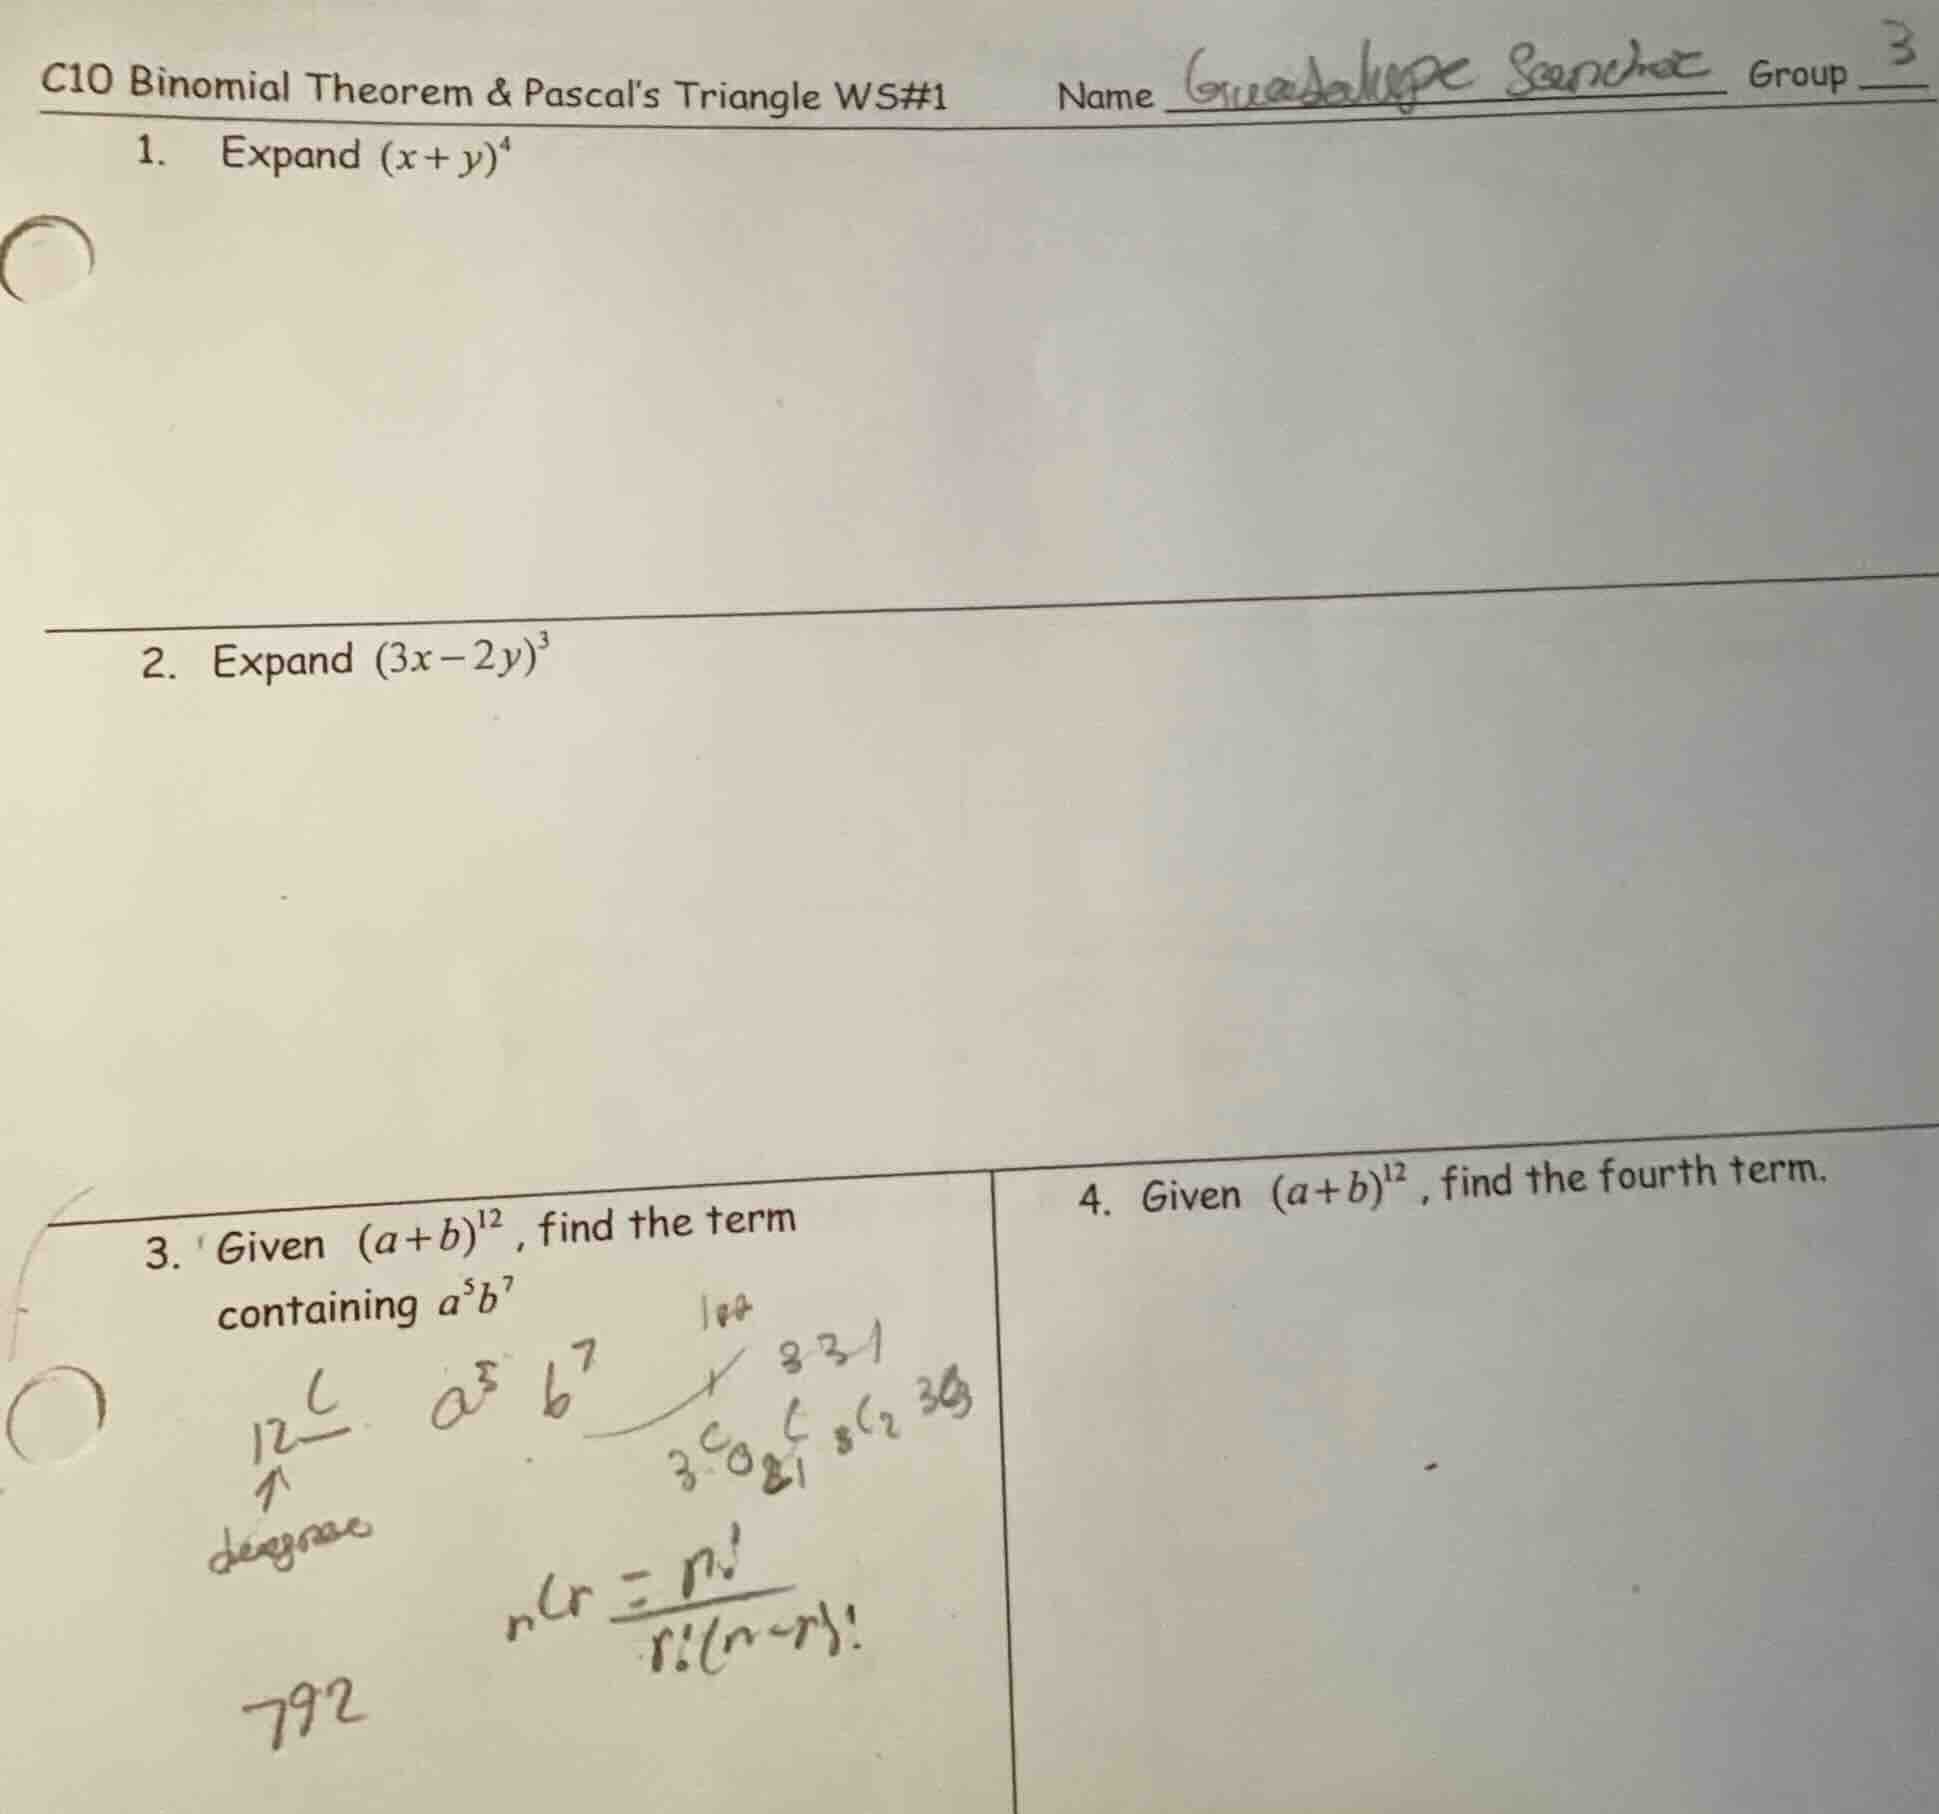 C10 Binomial Theorem & Pascal's Triangle WS#1 Name Guadalupe Sanchez Group 3
1. Expand (x+y)⁴
2. Expand (3x−2y)³
3. Given (a+b)¹², find the term
containing a⁵b⁷
12C a⁵ b⁷
3 3 1
degree
nCr = n!
r!(n-r)!
792
4. Given (a+b)¹², find the fourth term.